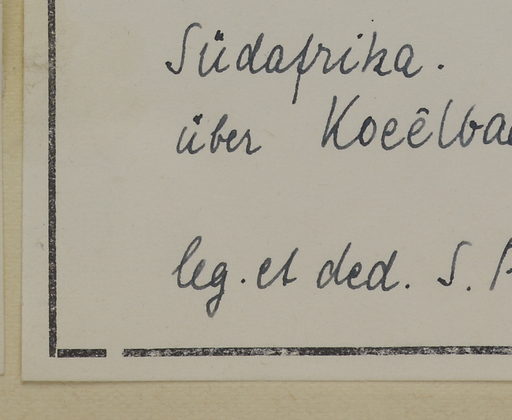 Südafrika.
über Koeêlba
leg. et ded. S.